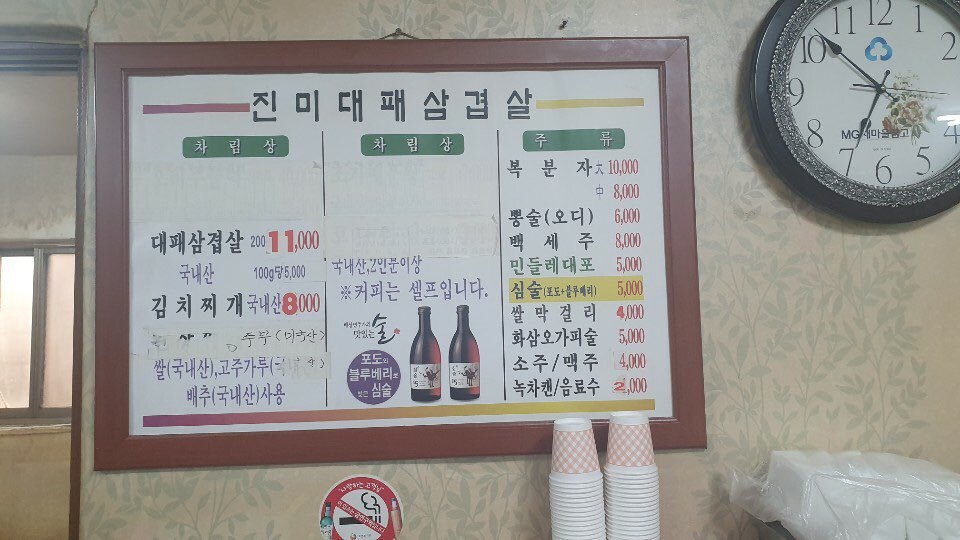 진미대패삼겹살
차림상
대패삼겹살 200 11,000
국내산 100g당 5,000
김치찌개 국내산 8,000
두부(미국산)
쌀(국내산),고추가루(국내산)
배추(국내산)사용
차림상
국내산,2인분이상
※커피는 셀프입니다.
맛있는 술
포도와
블루베리로
빚은
심술
주류
복분자 大 10,000
中 8,000
뽕술(오디) 6,000
백세주 8,000
민들레대포 5,000
심술(포도+블루베리) 5,000
쌀막걸리 4,000
화삼오가피술 5,000
소주/맥주 4,000
녹차캔/음료수 2,000
10 11 12 2 3 4 5 6 7 8 9
MG새마을금고
"사랑하는 고객님"